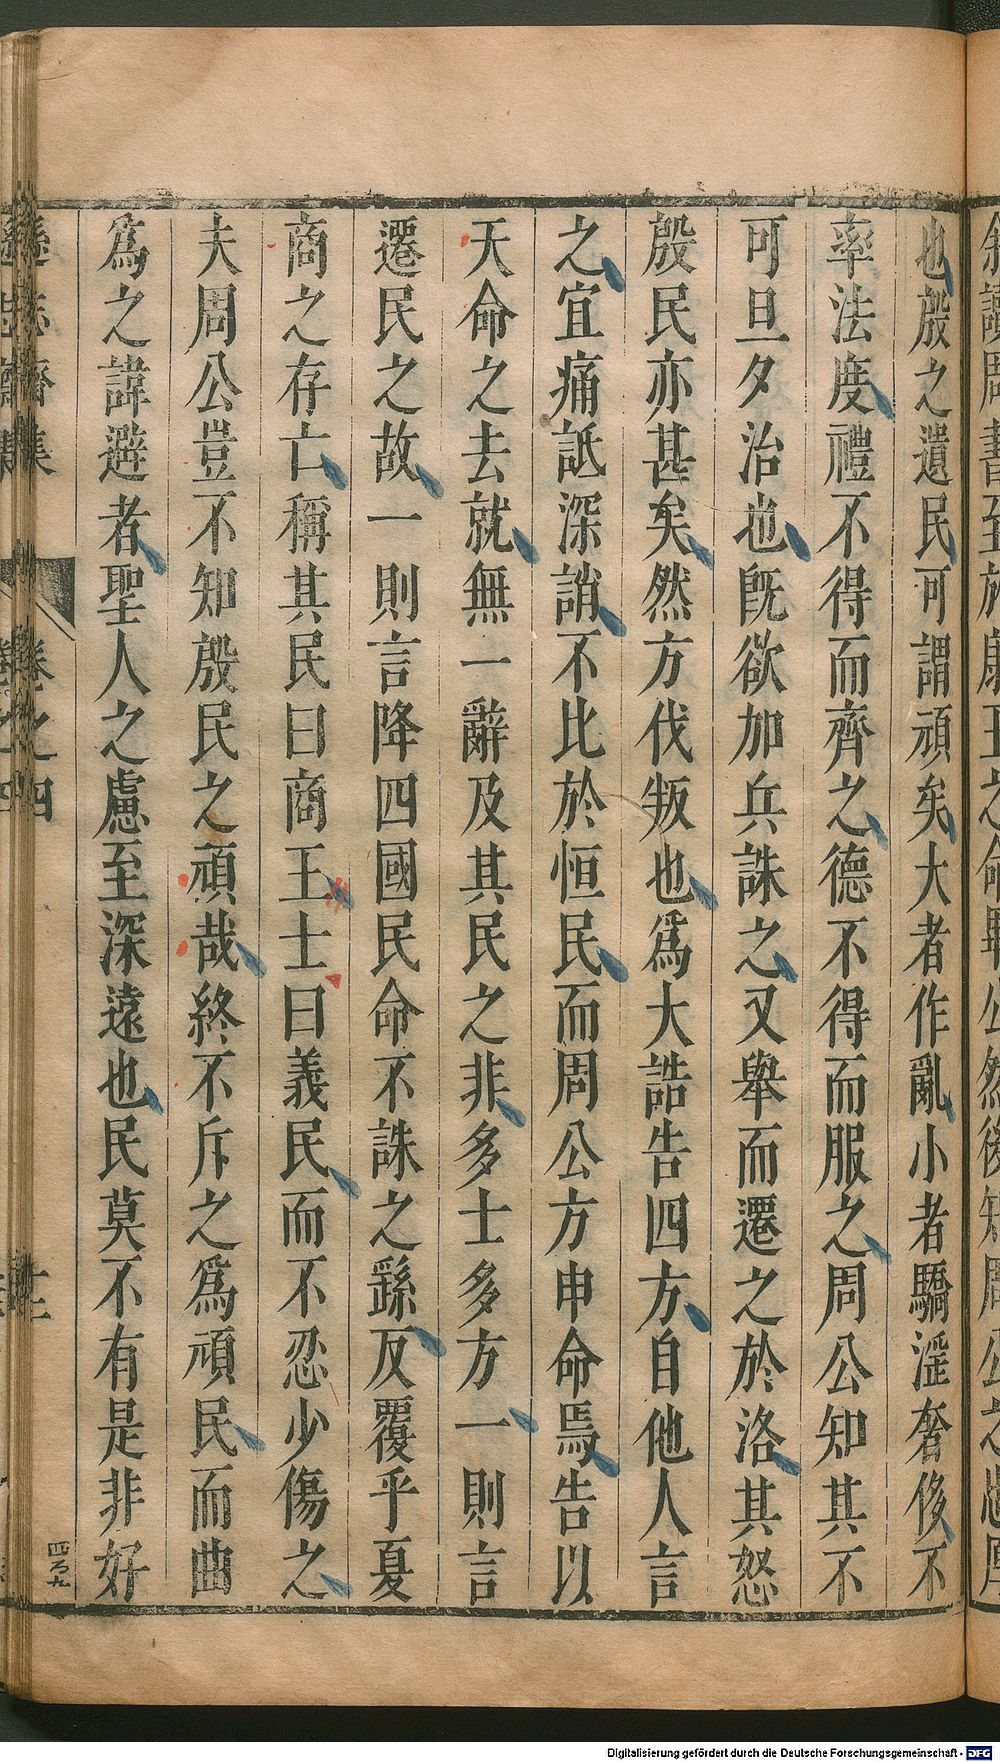 也殷之遺民可謂頑矣大者作亂小者驕滛奢侈不
率法度禮不得而齊之德不得而服之周公知其不
可旦夕治也旣欲加兵誅之又舉而遷之於洛其怒
殷民亦甚矣然方伐叛也爲大誥告四方自他人言
之宜痛詆深誚不比於恒民而周公方申命焉告以
天命之去就無一辭及其民之非多士多方一則言
遷民之故一則言降四國民命不誅之繇反覆乎夏
商之存亡稱其民曰商王士曰義民而不忍少傷之
夫周公豈不知殷民之頑哉終不斥之爲頑民而曲
爲之諱避者聖人之慮至深遠也民莫不有是非好
遜志齋集
卷之四
四百九
Digitalisierung gefördert durch die Deutsche Forschungsgemeinschaft - DFG